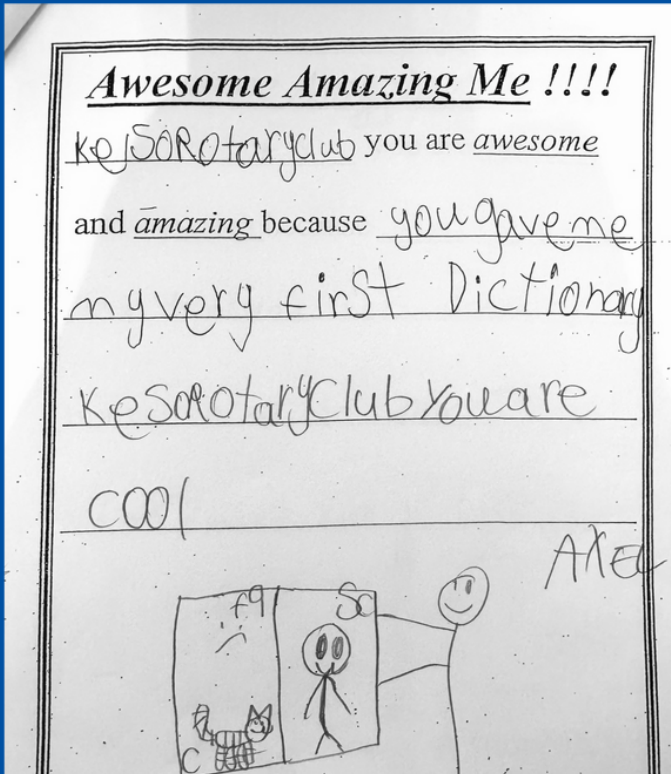 Awesome Amazing Me !!!!
KelSORotaryclub you are awesome
and amazing because you gave me
my very first Dictionary
KesoRotaryClub You are
cool
AXEL
49 50
C